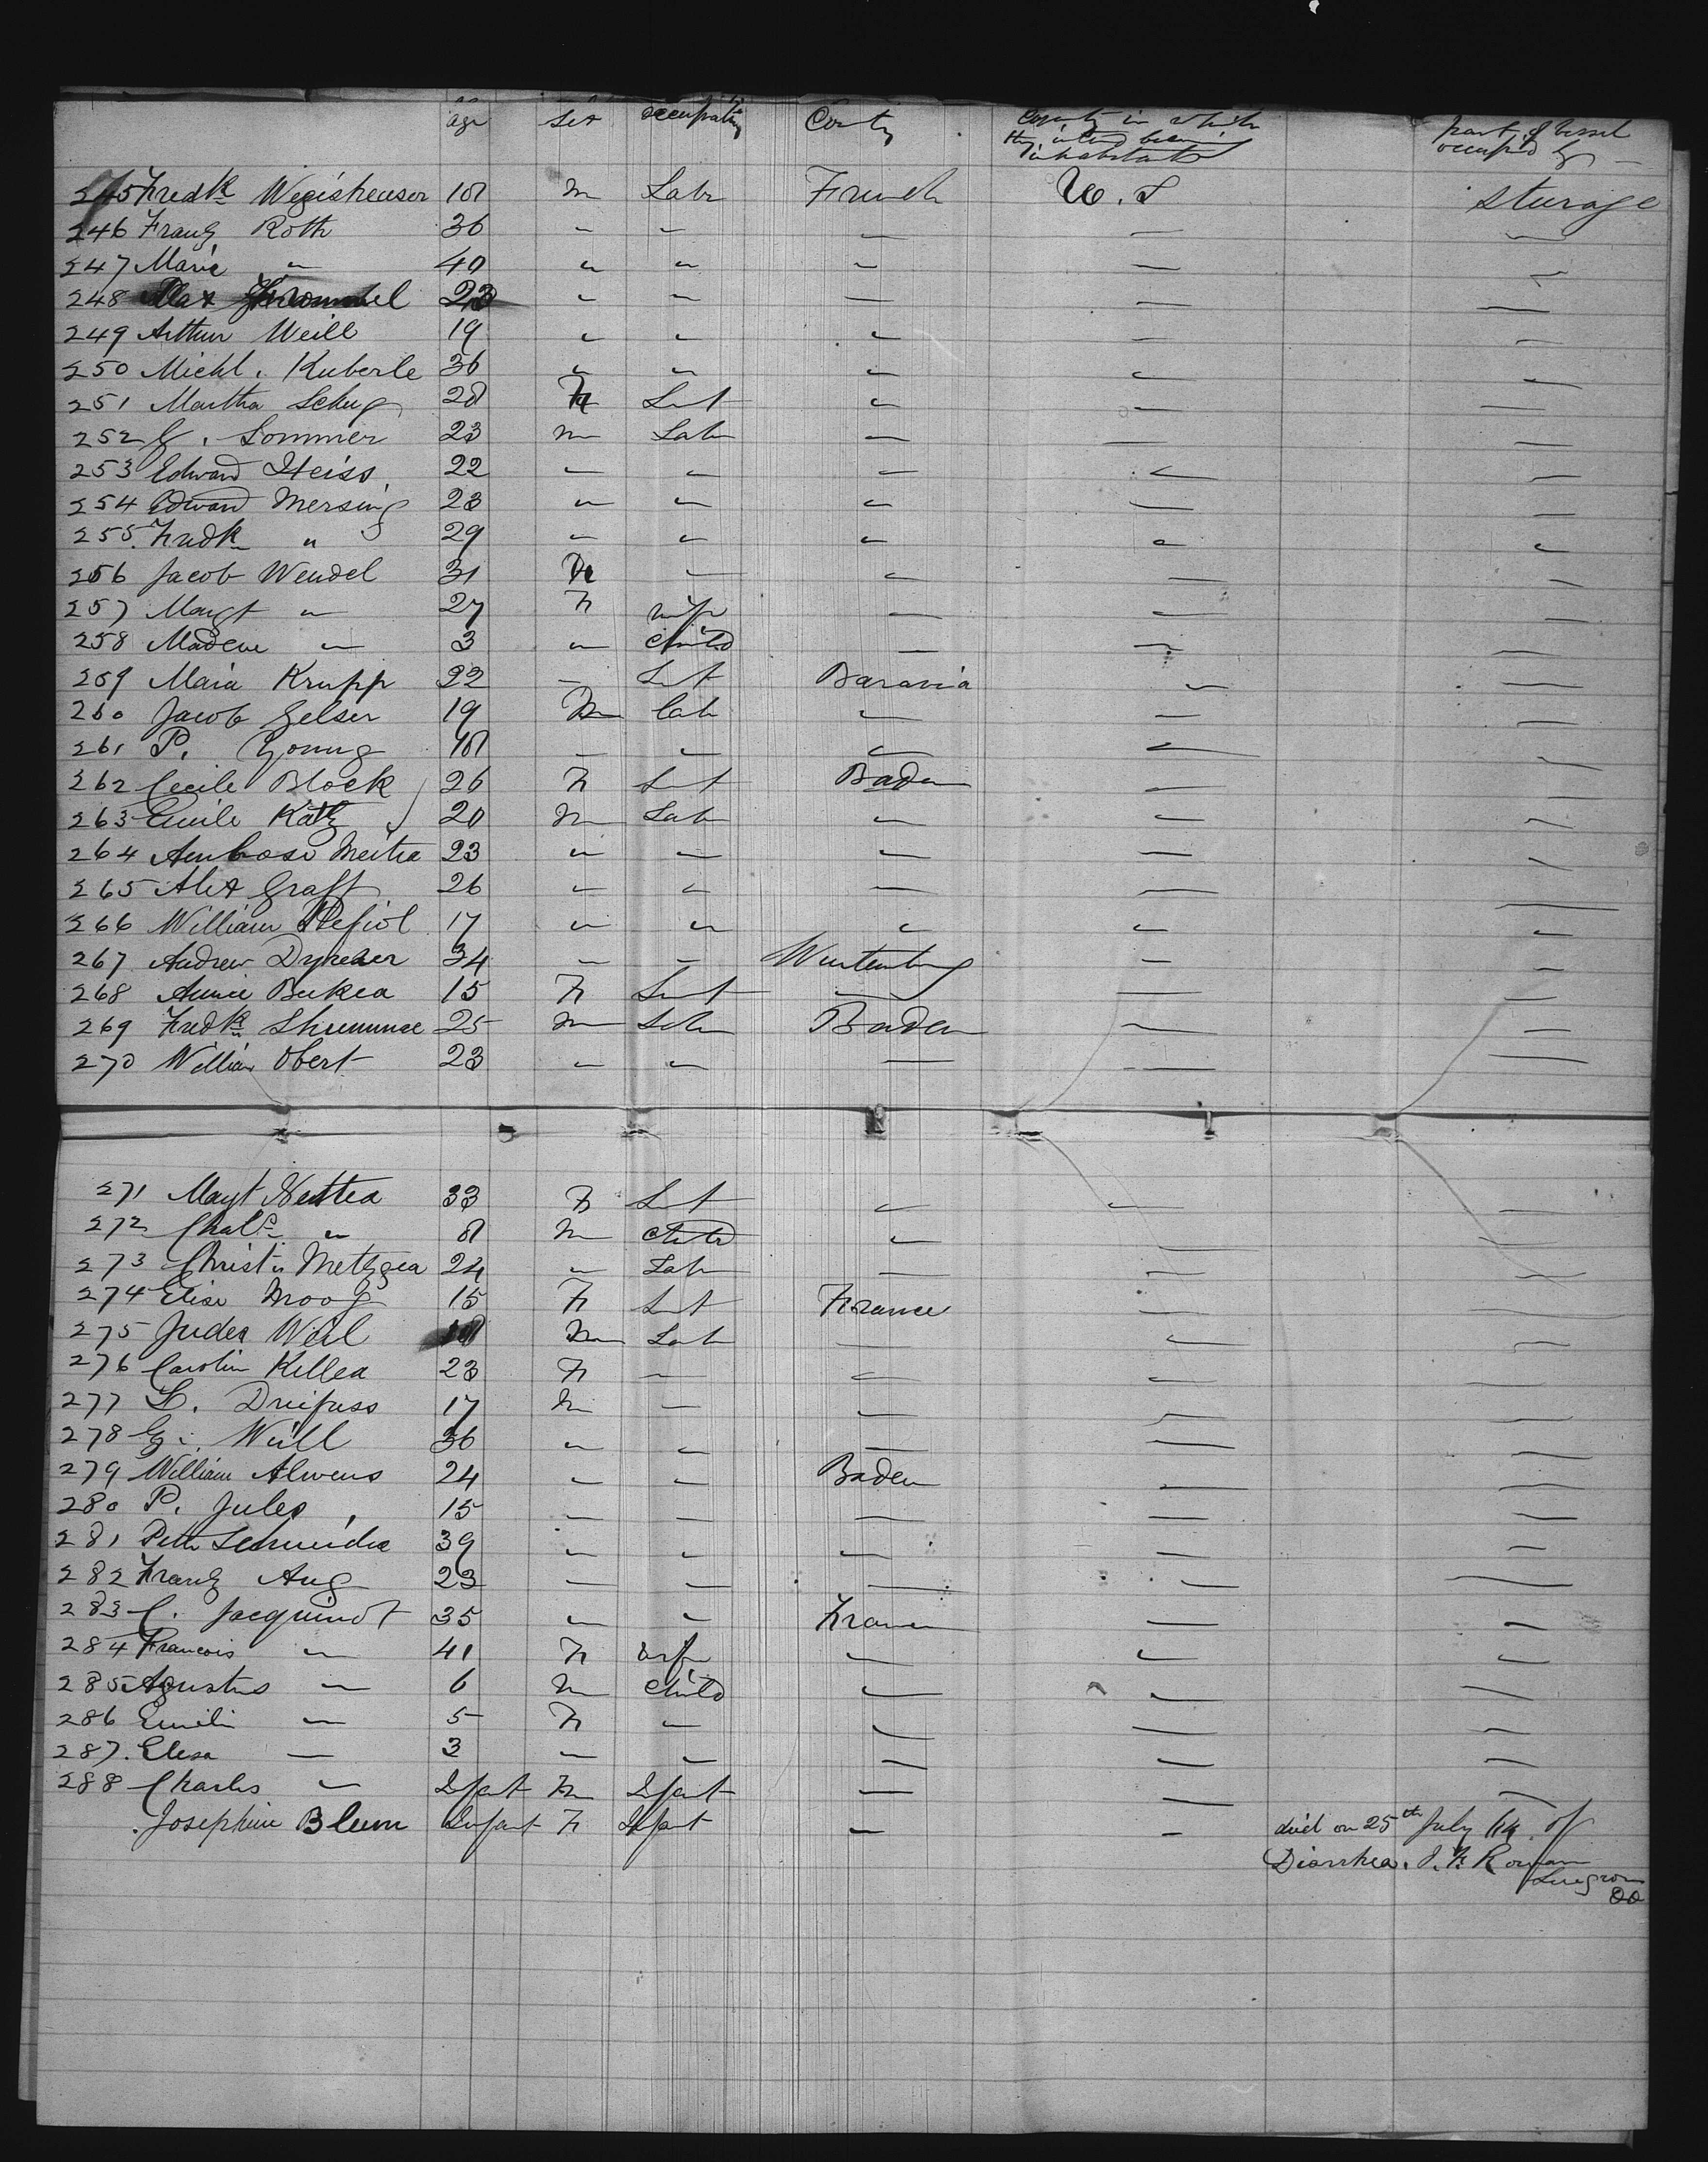 age Sex occupation County County in which they intend becoming inhabitants part of vessel occupied by
245 Fredk Wegisheuser 18 m Labr French U. S sturage
246 Franz Roth 36 " " — — —
247 Marie " 40 " " " — —
248 Max 23 " " — — —
249 Arthur Weill 19 " " " — —
250 Michl. Kuberle 36 " " " — —
251 Martha Schug 28 F Svt " — —
252 G. Sommer 23 m Labr — — —
253 Edward Heiss 22 — " — — —
254 Edward Mersing 23 " " " — —
255 Fredk " 29 " " " " "
256 Jacob Wendel 31 M — — — —
257 Margt " 27 F wife — — —
258 Madlene — 3 " child — — —
259 Maria Krupp 22 — Svt Bavaria — —
260 Jacob Gelser 19 M lab — — —
261 P. Young 18 — — — — —
262 Cecile Block 26 F Svt Baden — —
263 Emile Katz 20 m Lab — — —
264 Ambose 23 " — — — —
265 Alex Graff 26 — " — — —
266 William 17 " " " " "
267 Andrew 34 — — Wurtemburg — —
268 Annie 15 F Svt — — —
269 Fredk 25 m Lab Baden — —
270 William Obert 23 — " — — —
271 Magt 33 F Svt — — —
272 Chals " 8 m child — — —
273 Christn Metzger 24 " Lab — — —
274 Elise Moog 15 F Svt France — —
275 Judes Weil 18 M Lab — — —
276 Carolin Keller 23 F — — — —
277 L. Dreifuss 17 m — — — —
278 G. Weill 36 " — — — —
279 William Alwens 24 — — Baden — —
280 P. Jules 15 — — — — —
281 Peter Schneider 39 " " — — —
282 Frank Aug 23 — — — — —
283 C. Jacquinot 35 " " France — —
284 Francois — 41 F wife — — —
285 Agustus — 6 m child — — —
286 Emili — 5 F — — — —
287. Elesa — 3 — — — — —
288 Charles — Infant m Infant — — —
Josephine Blum Infant F Infant — — died on 25th July 64 of
Diarrhea. J. F. Rowan
Surgeon